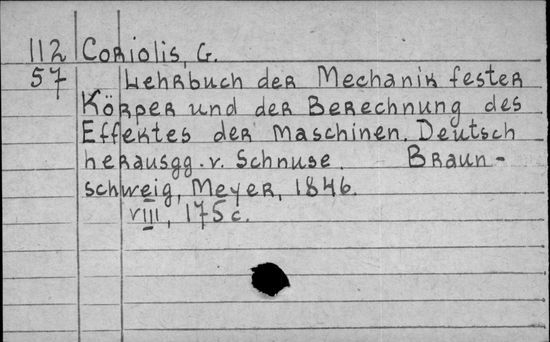 112 Coriolis, G.
57 Lehrbuch der Mechanik fester
Körper und der Berechnung des
Effektes der Maschinen. Deutsch
herausgg. v. Schnuse. Braun-
schweig, Meyer, 1846.
VIII, 175 c.